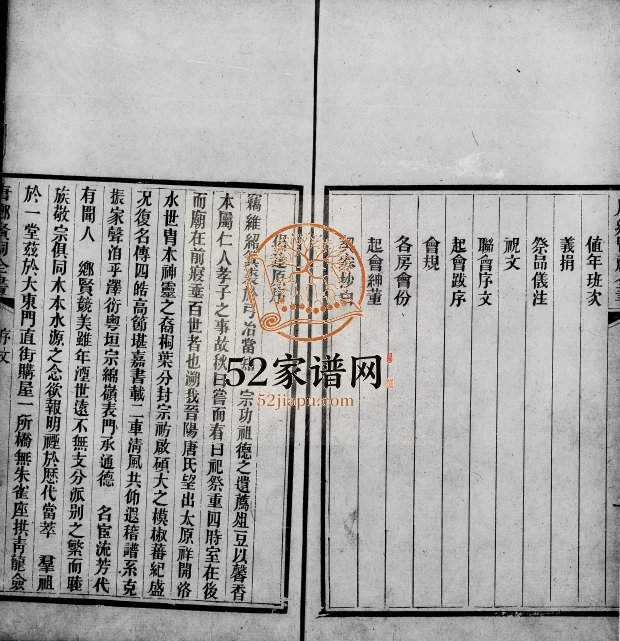 値年班次
義捐
祭品儀注
祝文
聯會序文
起會跋序
會規
各房會份
起會紳董
契
倡建原序
竊維綿
治當
宗功祖德之遺薦俎豆以馨香
本屬仁人孝子之事故秋曰嘗而春曰祀祭重四時室在後
而廟在前寢垂百世者也溯我晉陽唐氏望出太原祥開洛
水世胄本神靈之裔桐葉分封宗祊啟碩大之模椒蕃紀盛
况復名傳四皓高節堪嘉書載二車清風共飾遐稽譜系克
振家聲洎乎澤衍粵垣宗綿嶺表門承通德 名宦流芳代
有聞人 鄉賢競美雖年湮世遠不無支分派別之繁而睦
族敬宗俱同木本水源之念欲報明禋於歷代當萃 羣祖
於一堂茲於大東門直街購屋一所橋無朱雀座拱靑龍僉
唐鄉賢祠全書
序文
52家谱网
52jiapu.com